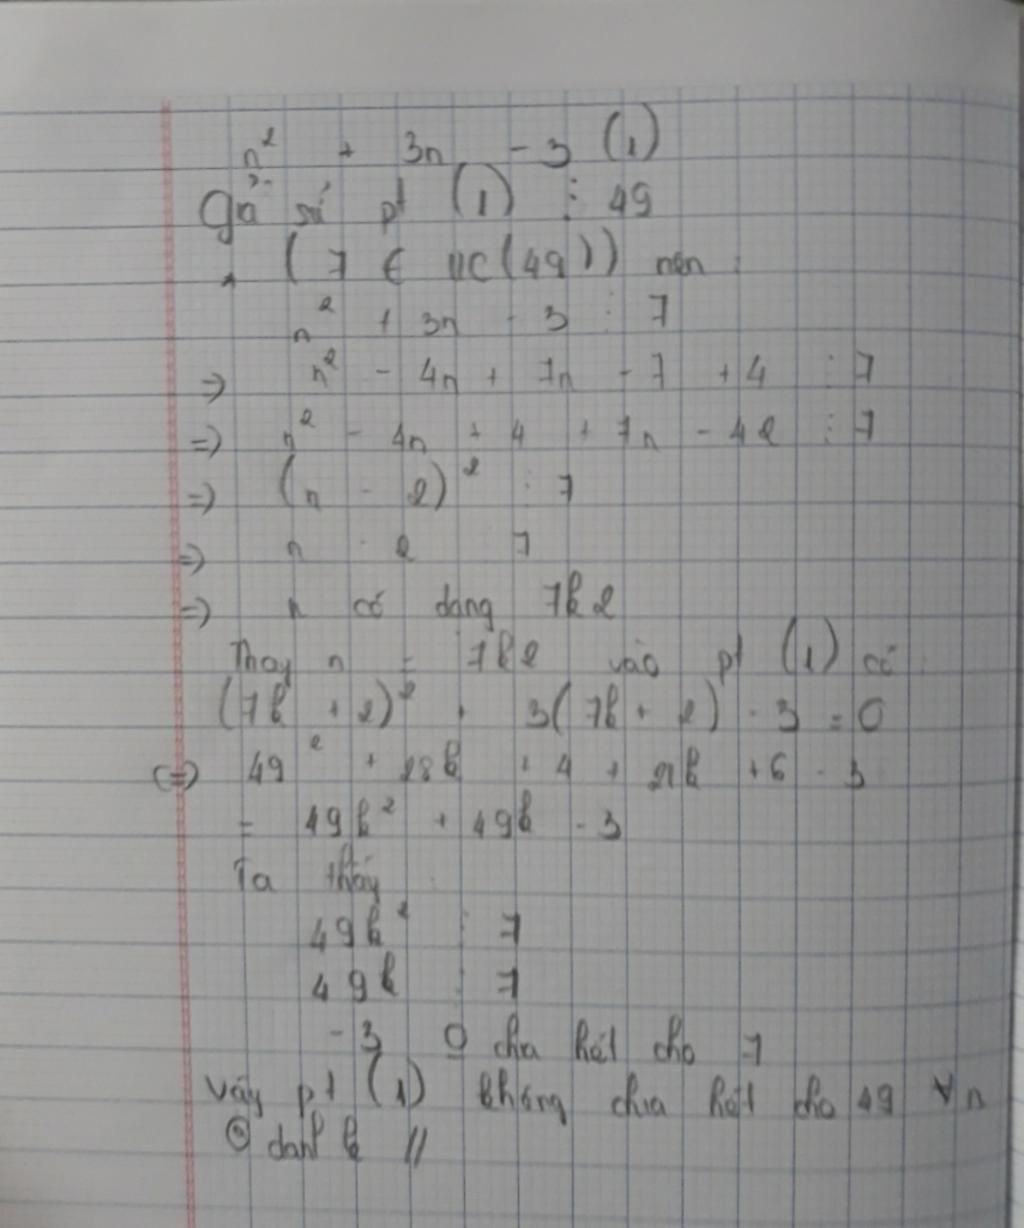 n² + 3n - 3 (1)
Giả sử pt (1) ⋮ 49
(7 ∈ ƯC(49)) nên
n² + 3n - 3 ⋮ 7
=> n² - 4n + 7n - 7 + 4 ⋮ 7
=> n² - 4n + 4 + 7n - 42 ⋮ 7
=> (n - 2)² ⋮ 7
=> n - 2 7
=> n có dạng 7k2
Thay n = 7k2 vào pt (1) có
(7k + 2)² + 3(7k + 2) - 3 = 0
<=> 49² + 28k + 4 + 21k + 6 - 3
= 49k² + 49k - 3
Ta thấy
49k² ⋮ 7
49k ⋮ 7
-3 0 chia hết cho 7
Vậy pt (1) không chia hết cho 49 ∀n